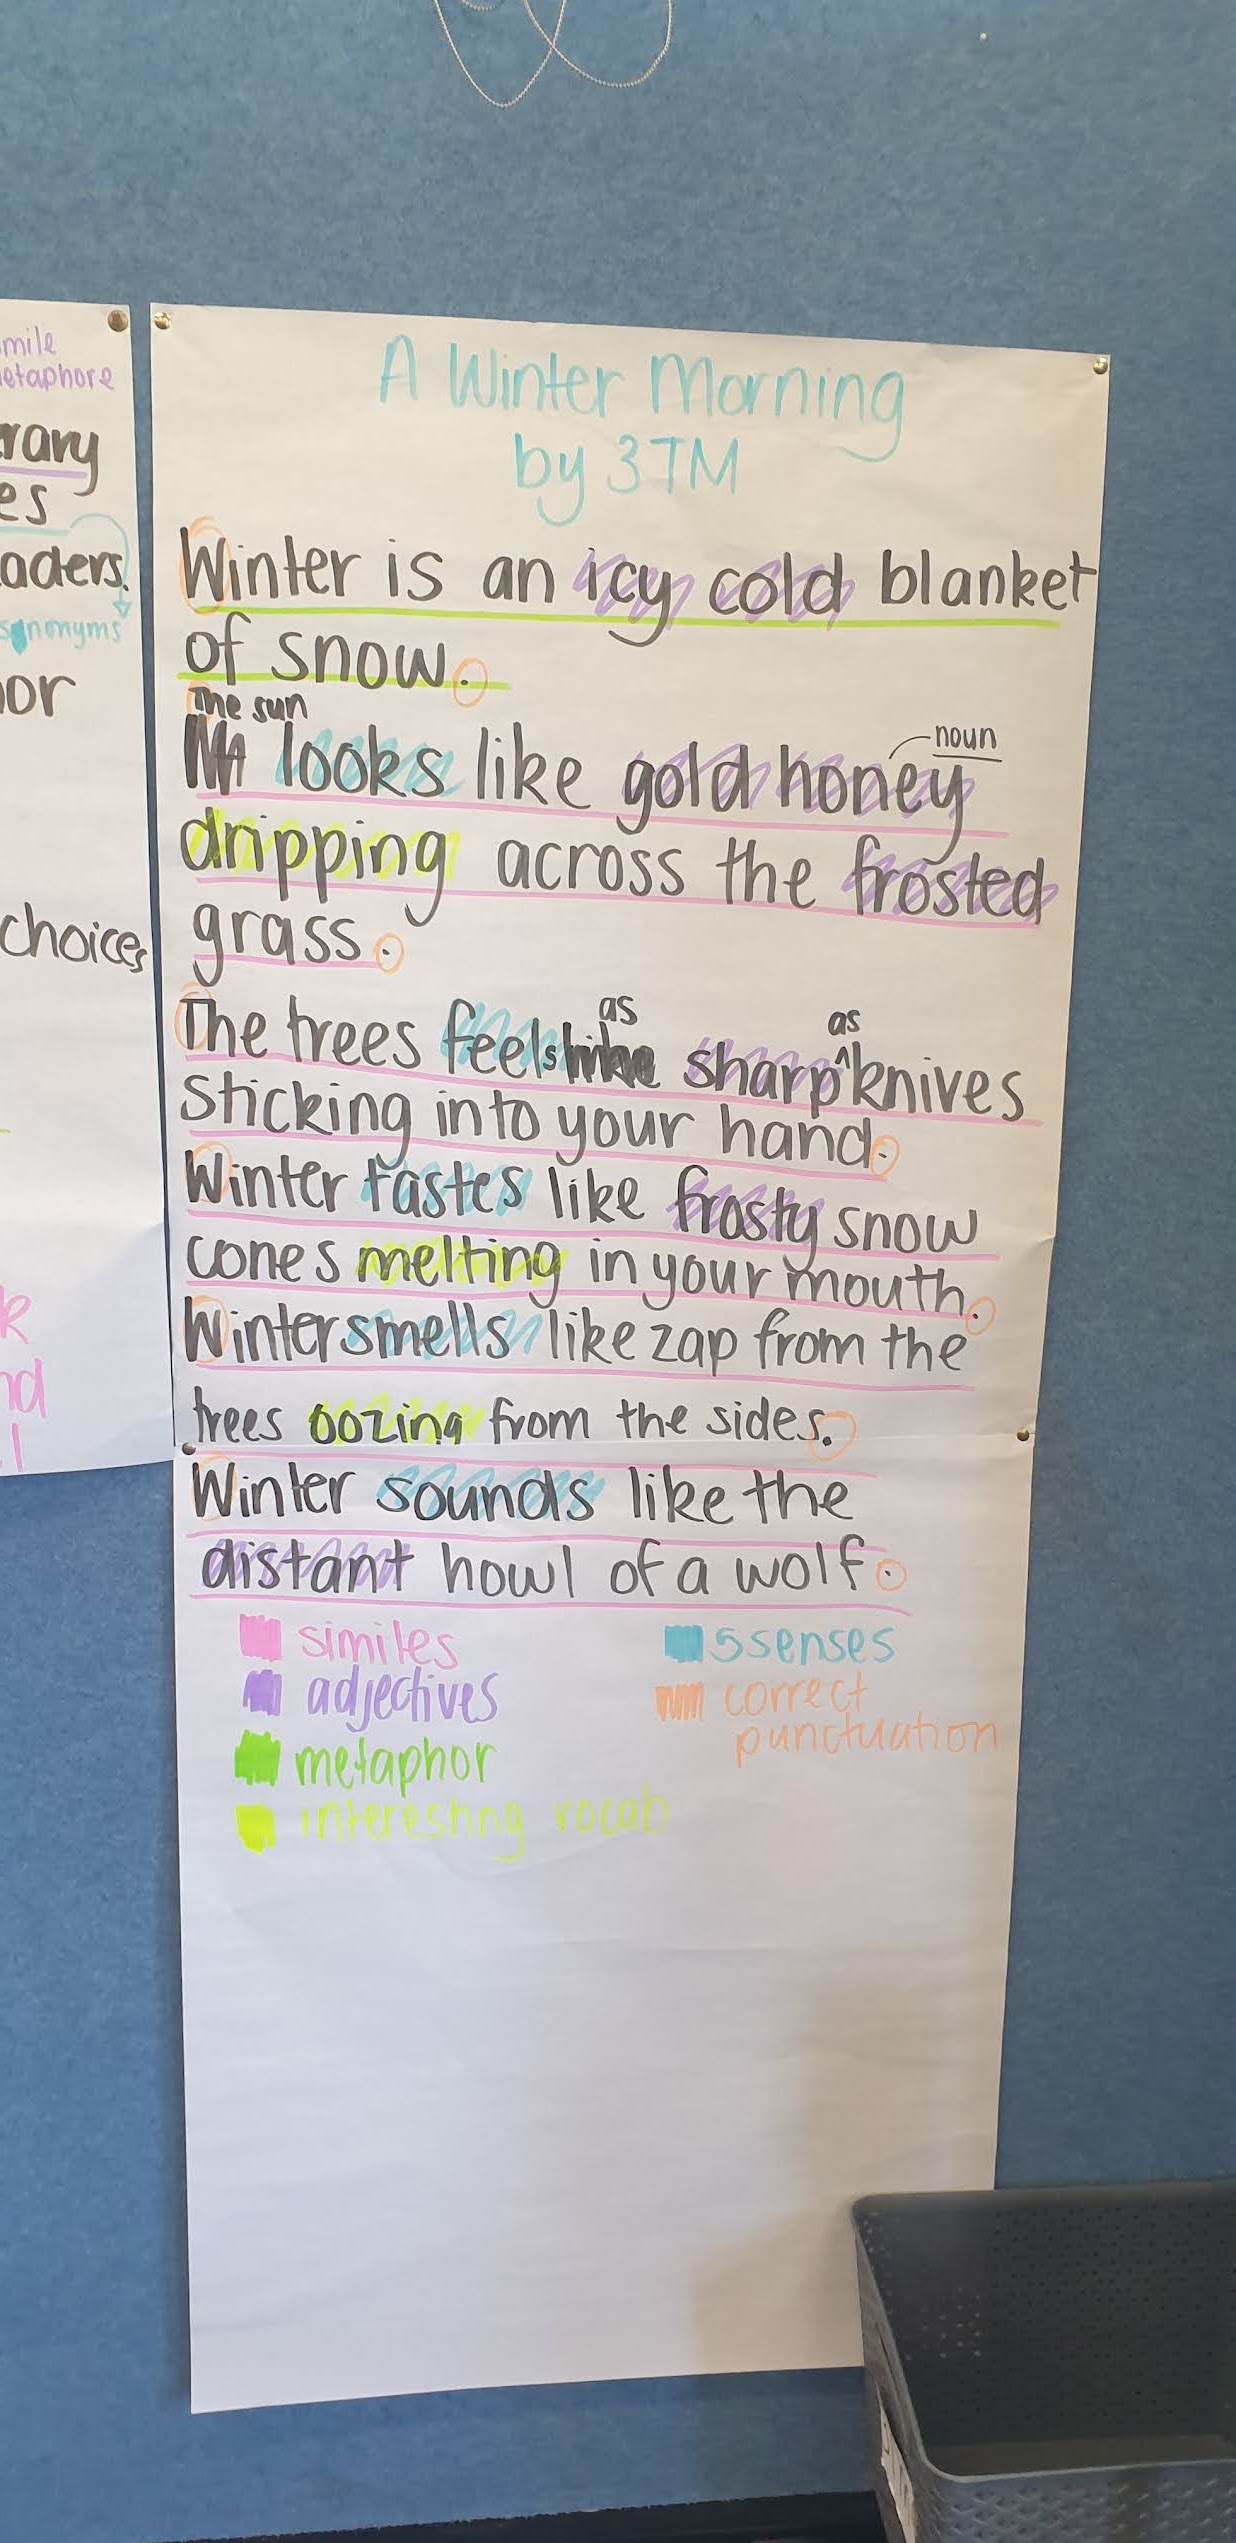 mile
etaphore
rary
es
aders.
synonyms
or
choices
k
nd
l
A Winter Morning
by 3TM
Winter is an icy cold blanket
of snow.
The sun
looks like gold honey
noun
dripping across the frosted
grass.
as as
The trees feel sharp ^ knives
sticking into your hand.
Winter tastes like frosty snow
cones melting in your mouth.
Winter smells like zap from the
trees oozing from the sides.
Winter sounds like the
distant howl of a wolf.
similes
adjectives
metaphor
interesting vocab
5 senses
correct
punctuation